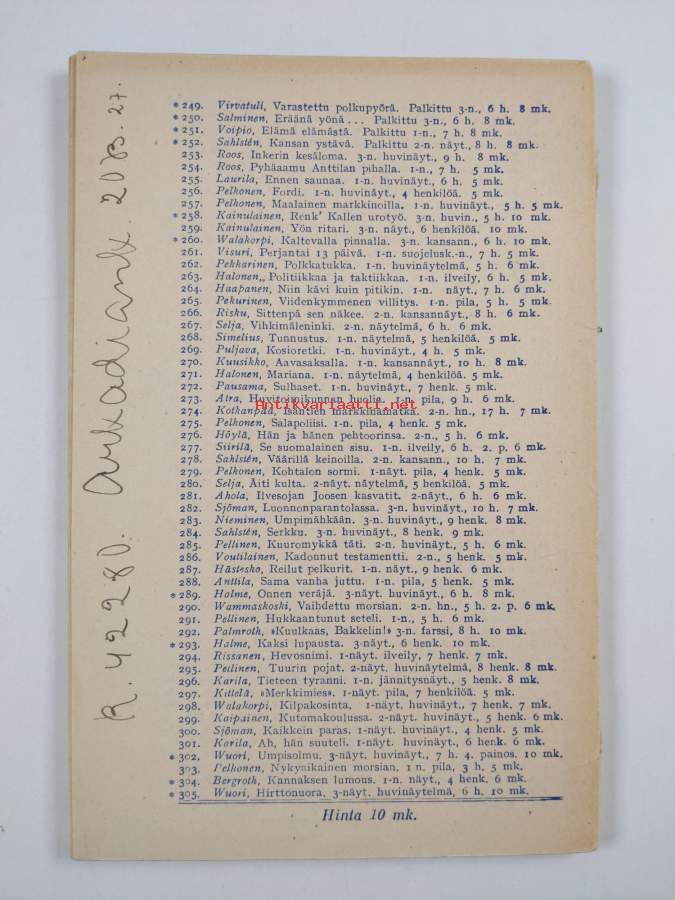 *249. Virvatuli, Varastettu polkupyörä. Palkittu 3-n., 6 h. 8 mk.
*250. Salminen, Eräänä yönä... Palkittu 3-n., 6 h. 8 mk.
*251. Voipio, Elämä elämästä. Palkittu 1-n., 7 h. 8 mk.
*252. Sahlstén, Kansan ystävä. Palkittu 2-n. näyt., 8 h. 8 mk.
253. Roos, Inkerin kesäloma. 3-n. huvinäyt., 9 h. 8 mk.
254. Roos, Pyhäaamu Anttilan pihalla. 1-n., 7 h. 5 mk.
255. Laurila, Ennen saunaa. 1-n. huvinäyt., 6 h. 5 mk.
256. Pelkonen, Fordi. 1-n. huvinäyt., 4 henkilöä. 5 mk.
257. Pelkonen, Maalainen markkinoilla. 1-n. huvinäyt., 5 h. 5 mk.
*258. Kainulainen, Renk' Kallen urotyö. 3-n. huvin., 5 h. 10 mk.
259. Kainulainen, Yön ritari. 3-n. näyt., 6 henkilöä. 10 mk.
*260. Walakorpi, Kaltevalla pinnalla. 3-n. kansann., 6 h. 10 mk.
261. Visuri, Perjantai 13 päivä. 1-n. suojelusk.-n., 7 h. 5 mk.
262. Pekkarinen, Polkkatukka. 1-n. huvinäytelmä, 5 h. 6 mk.
263. Halonen,, Politiikkaa ja taktiikkaa. 1-n. ilveily, 6 h. 5 mk.
264. Haapanen, Niin kävi kuin pitikin. 1-n. näyt., 7 h. 6 mk.
265. Pekurinen, Viidenkymmenen villitys. 1-n. pila, 5 h. 5 mk.
266. Risku, Sittenpä sen näkee. 2-n. kansannäyt., 8 h. 6 mk.
267. Selja, Vihkimäleninki. 2-n. näytelmä, 6 h. 6 mk.
268. Simelius, Tunnustus. 1-n. näytelmä, 5 henkilöä. 5 mk.
269. Puljava, Kosioretki. 1-n. huvinäyt., 4 h. 5 mk.
270. Kuusikko, Aavasaksalla. 1-n. kansannäyt., 10 h. 8 mk.
271. Halonen, Mariana. 1-n. näytelmä, 4 henkilöä. 5 mk.
272. Pausama, Sulhaset. 1-n. huvinäyt., 7 henk. 5 mk.
273. Atra, Huvitoimikunnan huolia. 1-n. pila, 9 h. 6 mk.
Antikvariaatti.net
274. Kotkanpää, Isäntien markkinamatka. 2-n. hn., 17 h. 7 mk.
275. Pelkonen, Salapoliisi. 1-n. pila, 4 henk. 5 mk.
276. Höylä, Hän ja hänen pehtoorinsa. 2-n., 5 h. 6 mk.
277. Siirilä, Se suomalainen sisu. 1-n. ilveily, 6 h. 2. p. 6 mk.
278. Sahlstén, Väärillä keinoilla. 2-n. kansann., 10 h. 7 mk.
279. Pelkonen, Kohtalon sormi. 1-näyt. pila, 4 henk. 5 mk.
280. Selja, Äiti kulta. 2-näyt. näytelmä, 5 henkilöä. 5 mk.
281. Ahola, Ilvesojan Joosen kasvatit. 2-näyt., 6 h. 6 mk.
282. Sjöman, Luonnonparantolassa. 3-n. huvinäyt., 10 h. 7 mk.
283. Nieminen, Umpimähkään. 3-n. huvinäyt., 9 henk. 8 mk.
284. Sahlstén, Serkku. 3-n. huvinäyt., 8 henk. 9 mk.
285. Pellinen, Kuuromykkä täti. 2-n. huvinäyt., 5 h. 6 mk.
286. Voutilainen, Kadonnut testamentti. 2-n., 5 henk. 5 mk.
287. Hästesko, Reilut pelkurit. 1-n. näyt., 9 henk. 6 mk.
288. Anttila, Sama vanha juttu. 1-n. pila, 5 henk. 5 mk.
*289. Halme, Onnen veräjä. 3-näyt. huvinäyt., 6 h. 8 mk.
290. Wammaskoski, Vaihdettu morsian. 2-n. hn., 5 h. 2. p. 6 mk.
291. Pellinen, Hukkaantunut seteli. 1-n., 5 h. 6 mk.
292. Palmroth, »Kuulkaas, Bakkelin!» 3-n. farssi, 8 h. 10 mk.
*293. Halme, Kaksi lupausta. 3-näyt., 6 henk. 10 mk.
294. Rissanen, Hevosnimi. 1-näyt. ilveily, 7 henk. 7 mk.
295. Pellinen, Tuurin pojat. 2-näyt. huvinäytelmä, 8 henk. 8 mk.
296. Karila, Tieteen tyranni. 1-n. jännitysnäyt., 5 henk. 8 mk.
297. Kittelä, »Merkkimies». 1-näyt. pila, 7 henkilöä. 5 mk.
298. Walakorpi, Kilpakosinta. 1-näyt. huvinäyt., 7 henk. 7 mk.
299. Koipainen, Kutomakoulussa. 2-näyt. huvinäyt., 5 henk. 6 mk.
300. Sjöman, Kaikkein paras. 1-n. näyt., 4 henk. 5 mk.
301. Karila, Ah, hän suuteli. 1-näyt. huvinäyt., 6 henk. 6 mk.
*302. Wuori, Umpisolmu. 3-näyt. huvinäyt., 7 h. 4. painos. 10 mk.
303. Pelkonen, Nykyaikainen morsian. 1 n. pila, 3 h. 5 mk.
*304. Bergroth, Kannaksen lumous. 1-n. näyt., 4 henk. 6 mk.
*305. Wuori, Hirttonuora. 3-näyt. huvinäytelmä, 6 h. 10 mk.
Hinta 10 mk.
R. 42280. Arkadiank. 20 B. 27.